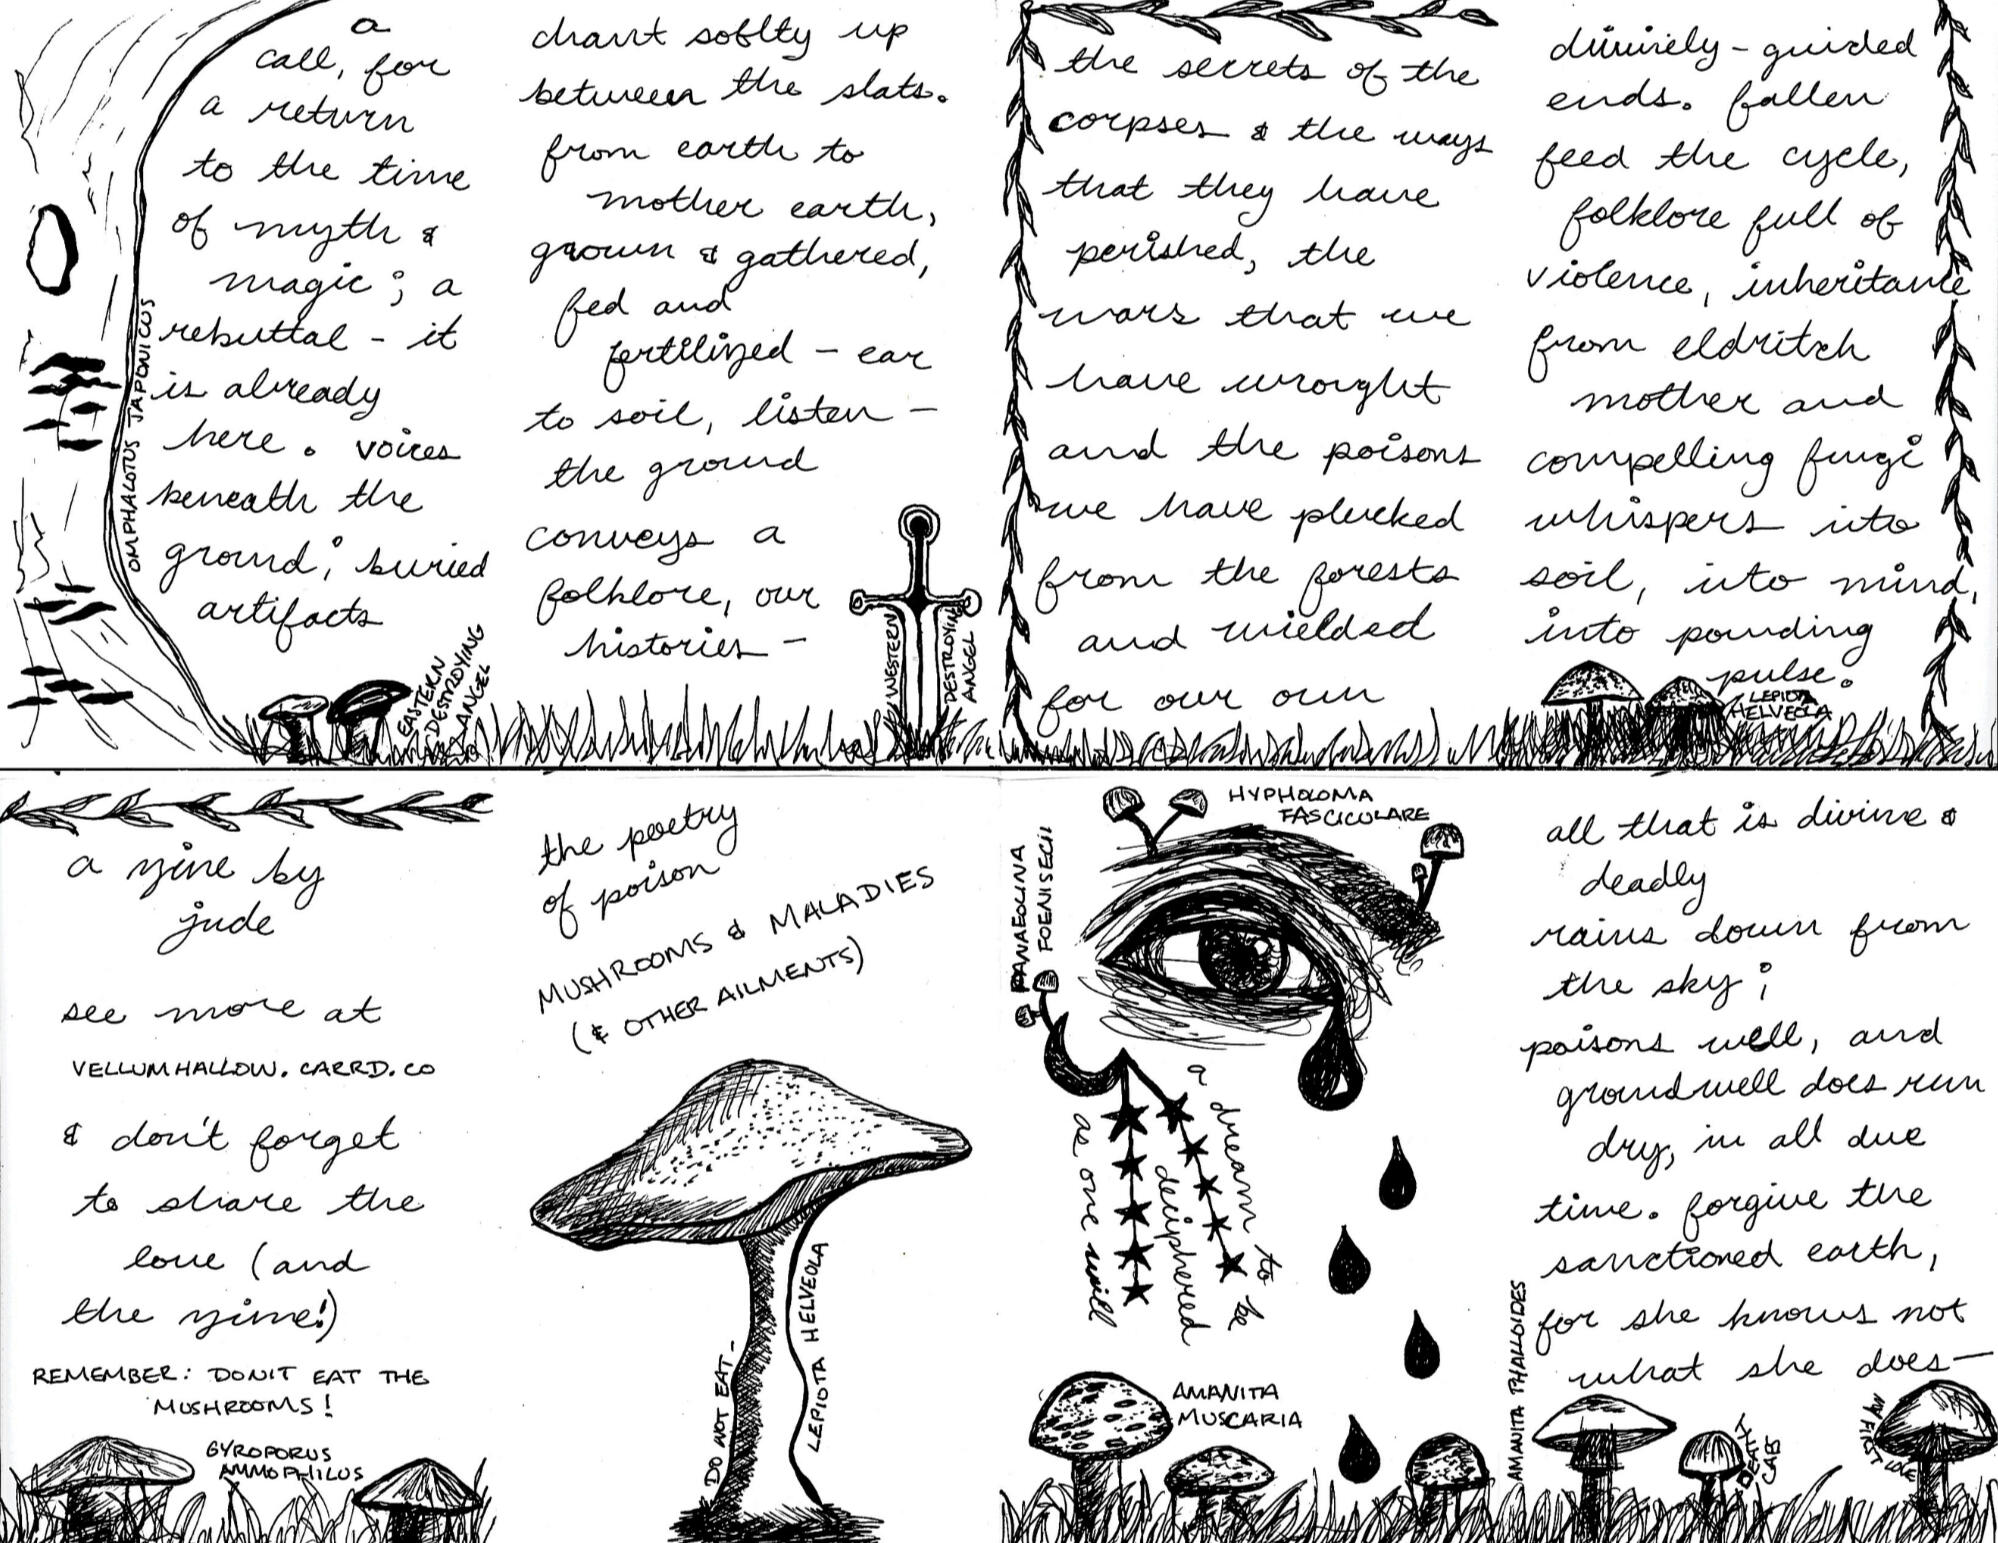 a
call, for
a return
to the time
of myth &
magic; a
rebuttal - it
is already
here. voices
beneath the
ground; buried
artifacts
OMPHALOTUS JAPONICUS
EASTERN
DESTROYING
ANGEL
chant soblty up
between the slats.
from earth to
mother earth,
grown & gathered,
fed and
fertilized - ear
to soil, listen -
the ground
conveys a
folklore, our
histories -
WESTERN
DESTROYING
ANGEL
the secrets of the
corpses & the ways
that they have
perished, the
wars that we
have wrought
and the poisons
we have plucked
from the forests
and wielded
for our own
divinely - guided
ends. fallen
feed the cycle,
folklore full of
violence, inheritance
from eldritch
mother and
compelling fungi
whispers into
soil, into mind,
into pounding
pulse.
LEPIOTA
HELVEOLA
a zine by
jude
see more at
VELLUMHALLOW.CARRD.CO
& don't forget
to share the
love (and
the zine!)
REMEMBER: DON'T EAT THE
MUSHROOMS!
GYROPORUS
AMMOPHILUS
the poetry
of poison
MUSHROOMS & MALADIES
(& OTHER AILMENTS)
DO NOT EAT -
LEPIOTA HELVEOLA
HYPHOLOMA
FASCICULARE
PANAEOLINA
FOENISECII
a dream to be
deciphered
as one will
AMANITA
MUSCARIA
all that is divine &
deadly
rains down from
the sky;
poisons well, and
groundwell does run
dry, in all due
time. forgive the
sanctioned earth,
for she knows not
what she does—
AMANITA PHALLOIDES
DEATH
CAPS
MY FIRST
LOVE